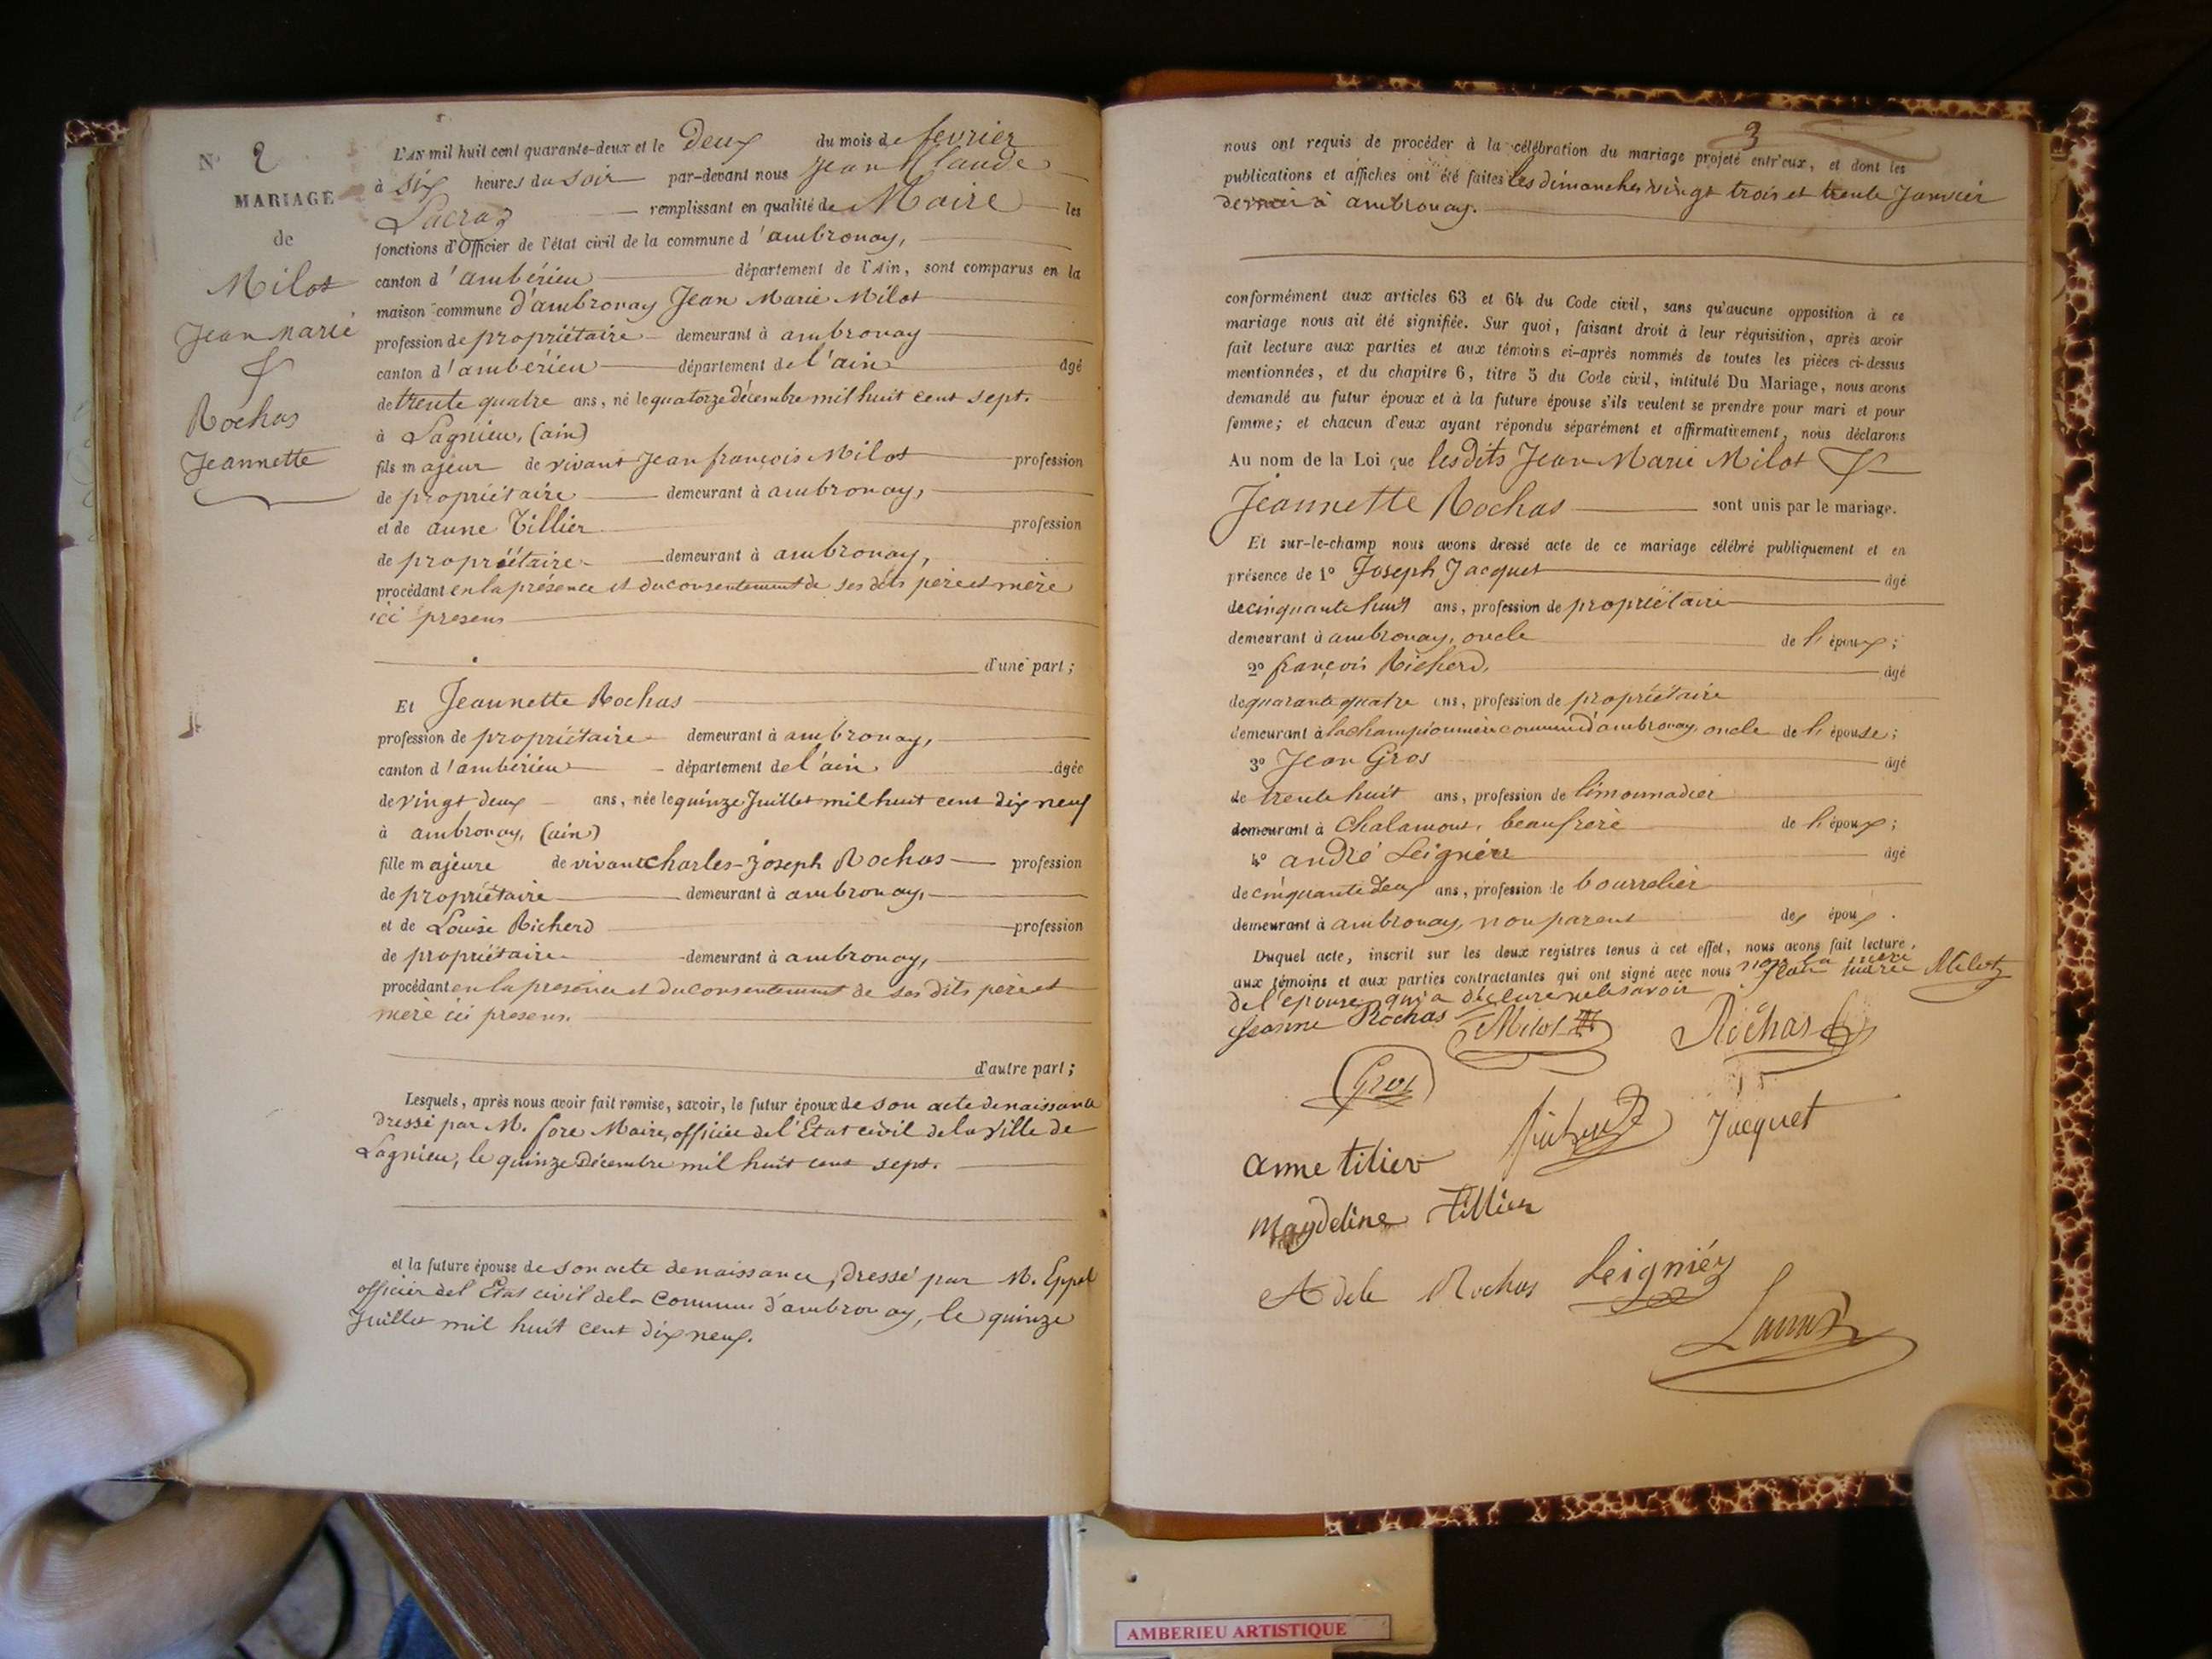 N° 2
MARIAGE
de
Milot
Jean Marie
&
Rochas
Jeannette
L'AN mil huit cent quarante-deux et le Deux du mois de fevrier
à six heures du soir par-devant nous Jean Claude
remplissant en qualité de Maire les
fonctions d'Officier de l'état civil de la commune d'ambronay,
canton d'ambérieu département de l'Ain, sont comparus en la
maison commune d'ambronay Jean Marie Milot
profession de propriétaire demeurant à ambronay
canton d'ambérieu département de l'ain âgé
de trente quatre ans, né le quatorze décembre mil huit cent sept.
à Lagnieu, (ain)
fils majeur de vivant Jean françois Milot profession
de propriétaire demeurant à ambronay,
et de anne Tillier profession
de propriétaire demeurant à ambronay,
procédant en la présence et du consentement de ses dits père et mère
ici presens
d'une part;
Et Jeannette Rochas
profession de propriétaire demeurant à ambronay,
canton d'ambérieu département de l'ain âgée
de vingt deux ans, née le quinze Juillet mil huit cent dix neuf
à ambronay, (ain)
fille majeure de vivant Charles-Joseph Rochas profession
de propriétaire demeurant à ambronay,
et de Louise Richerd profession
de propriétaire demeurant à ambronay,
procédant en la présence et du consentement de ses dits père et
mère ici presens.
d'autre part;
Lesquels, après nous avoir fait remise, savoir, le futur époux de son acte de naissance
dressé par M. fore Maire, officier de l'Etat civil de la ville de
Lagnieu, le quinze Décembre mil huit cent sept.
et la future épouse de son acte de naissance, dressé par M. Eppel
officier de l'Etat civil de la Commune d'ambronay, le quinze
Juillet mil huit cent dix neuf.
3
nous ont requis de procéder à la célébration du mariage projeté entr'eux, et dont les
publications et affiches ont été faites les dimanches vingt trois et trente Janvier
dernier à ambronay.
conformément aux articles 63 et 64 du Code civil, sans qu'aucune opposition à ce
mariage nous ait été signifiée. Sur quoi, faisant droit à leur réquisition, après avoir
fait lecture aux parties et aux témoins ci-après nommés de toutes les pièces ci-dessus
mentionnées, et du chapitre 6, titre 5 du Code civil, intitulé Du Mariage, nous avons
demandé au futur époux et à la future épouse s'ils veulent se prendre pour mari et pour
femme; et chacun d'eux ayant répondu séparément et affirmativement, nous déclarons
Au nom de la Loi que les dits Jean Marie Milot &
Jeannette Rochas sont unis par le mariage.
Et sur-le-champ nous avons dressé acte de ce mariage célébré publiquement et en
présence de 1° Joseph Jacquet âgé
de cinquante huit ans, profession de propriétaire
demeurant à ambronay, oncle de l'époux;
2° françois Richerd, âgé
de quarante quatre ans, profession de propriétaire
demeurant à lachampionnière commune d'ambronay, oncle de l'épouse;
3° Jean Gros âgé
de trente huit ans, profession de limonnadier
demeurant à Chalamont, beaufrère de l'époux;
4° andré Leigniér âgé
de cinquante deux ans, profession de bourrelier
demeurant à ambronay, non parent des époux.
Duquel acte, inscrit sur les deux registres tenus à cet effet, nous avons fait lecture,
aux témoins et aux parties contractantes qui ont signé avec nous non la mère
de l'épouse qui a déclaré ne le savoir Jean marie Milot
Jeanne Rochas Milot Rochas
Gros
anne tilier Jacquet
Magdeline Tillier
Adele Rochas Leigniér
AMBERIEU ARTISTIQUE